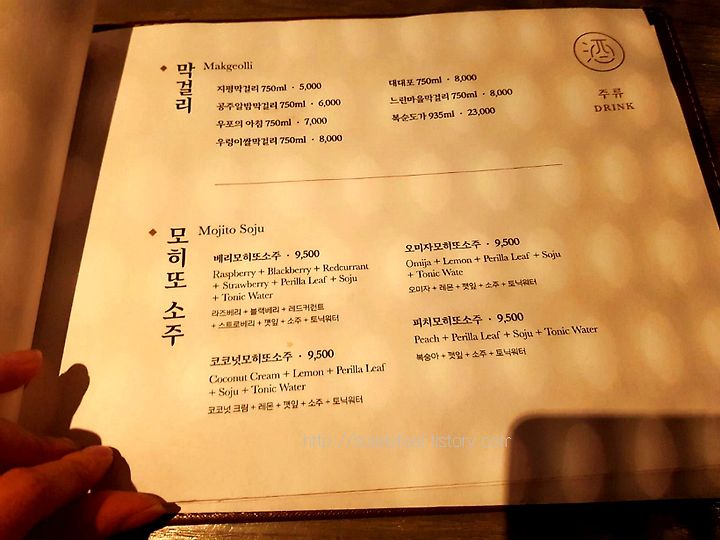 酒
주류
DRINK
막걸리
Makgeolli
지평막걸리 750ml · 5,000
공주알밤막걸리 750ml · 6,000
우포의 아침 750ml · 7,000
우렁이쌀막걸리 750ml · 8,000
대대포 750ml · 8,000
느린마을막걸리 750ml · 8,000
복순도가 935ml · 23,000
모히또 소주
Mojito Soju
베리모히또소주 · 9,500
Raspberry + Blackberry + Redcurrant
+ Strawberry + Perilla Leaf + Soju
+ Tonic Water
라즈베리 + 블랙베리 + 레드커런트
+ 스트로베리 + 깻잎 + 소주 + 토닉워터
코코넛모히또소주 · 9,500
Coconut Cream + Lemon + Perilla Leaf
+ Soju + Tonic Water
코코넛 크림 + 레몬 + 깻잎 + 소주 + 토닉워터
오미자모히또소주 · 9,500
Omija + Lemon + Perilla Leaf + Soju
+ Tonic Wate
오미자 + 레몬 + 깻잎 + 소주 + 토닉워터
피치모히또소주 · 9,500
Peach + Perilla Leaf + Soju + Tonic Water
복숭아 + 깻잎 + 소주 + 토닉워터